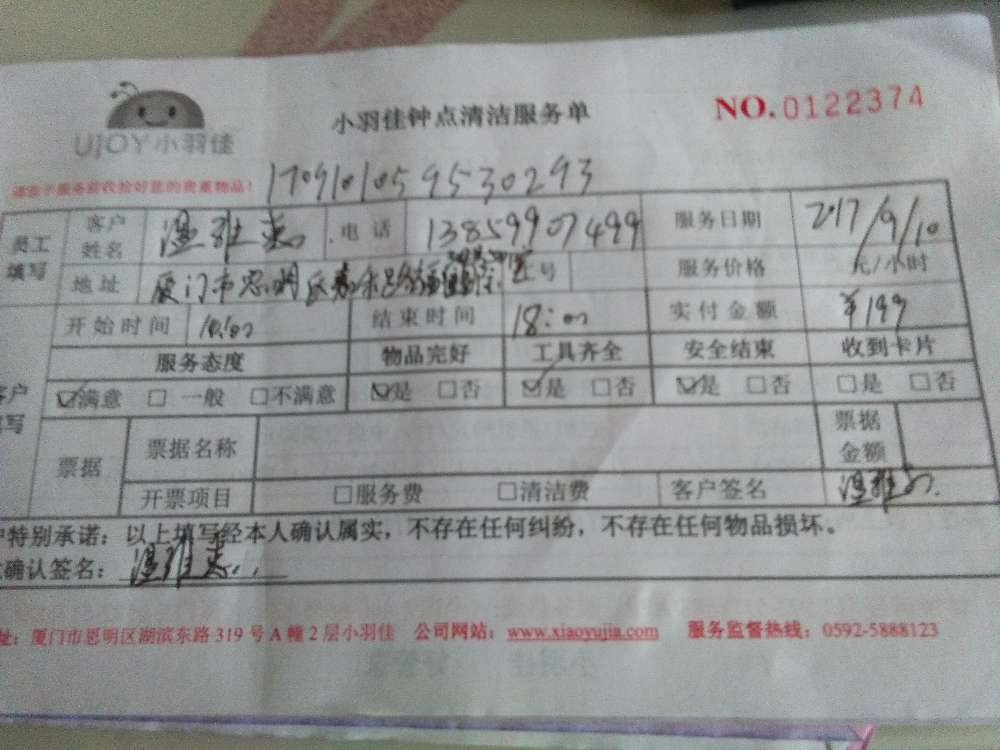 UjOY小羽佳
小羽佳钟点清洁服务单
NO.0122374
请您于服务前收拾好您的贵重物品!
17091010595302​93
员工填写 客户姓名 温雅 电话 13859907499 服务日期 2017/9/10
地址 厦门市思明区 号 服务价格 元/小时
开始时间 结束时间 18:00 实付金额 ¥199
服务态度 物品完好 工具齐全 安全结束 收到卡片
客户填写 ☑满意 □一般 □不满意 ☑是 □否 ☑是 □否 ☑是 □否 □是 □否
票据 票据名称 票据金额
开票项目 □服务费 □清洁费 客户签名 温雅
户特别承诺：以上填写经本人确认属实，不存在任何纠纷，不存在任何物品损坏。
确认签名： 温雅
址：厦门市思明区湖滨东路 319 号 A 幢 2 层小羽佳 公司网站：www.xiaoyujia.com 服务监督热线：0592-5888123